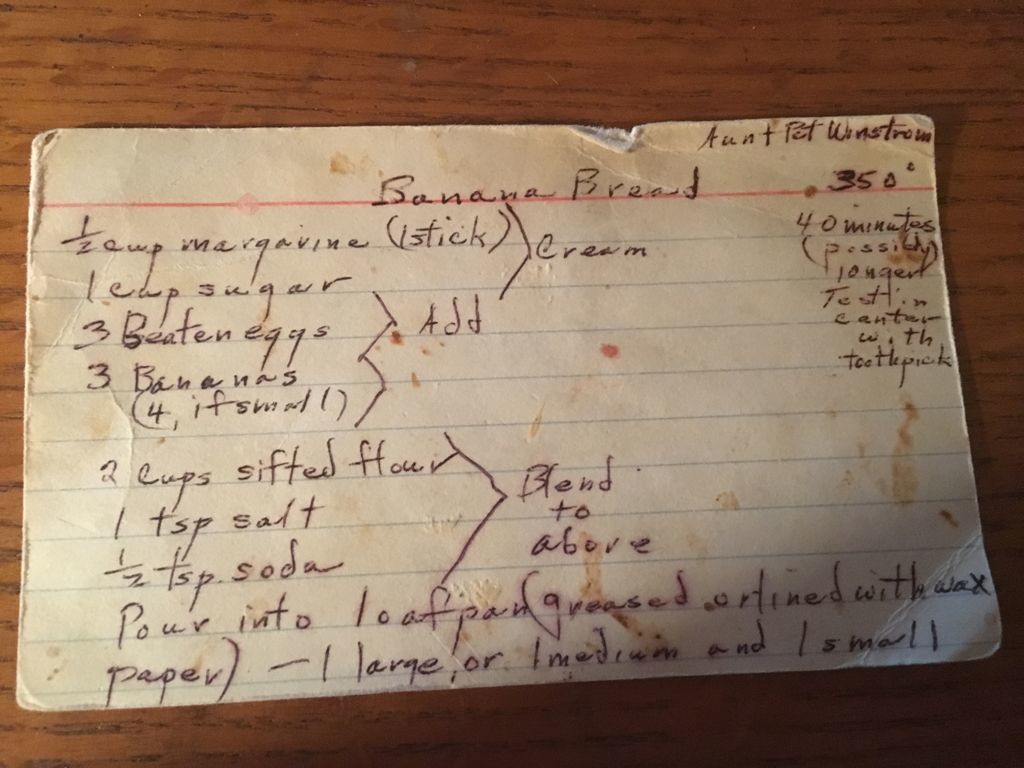 Aunt Pat Winstrom
Banana Bread 350°
½ cup margarine (1 stick) Cream
1 cup sugar
3 Beaten eggs Add
3 Bananas
(4, if small)
40 minutes
(possibly
longer)
Test in
center
with
toothpick
2 cups sifted flour
1 tsp salt
½ tsp. soda
Blend
to
above
Pour into loaf pan (greased or lined with wax
paper) – 1 large, or 1 medium and 1 small